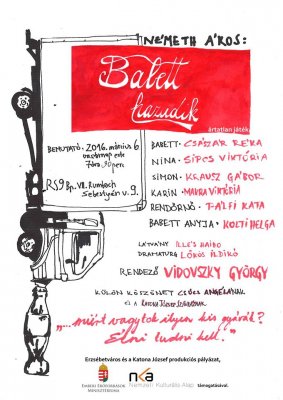 NÉMETH ÁKOS:
Babett
hazudik
ártatlan játék
BEMUTATÓ: 2016. március 6
vasárnap este
RS9 Bp. VII. Rumbach
Sebestyén u. 9.
BABETT: CSÁSZÁR RÉKA
NINA: SIPOS VIKTÓRIA
SIMON: KRAUSZ GÁBOR
KARIN: MAURA VIKTÓRIA
RENDŐRNŐ: PÁLFI KATA
BABETT ANYJA: KOLTI HELGA
LÁTVÁNY ILLÉS HAIBO
DRAMATURG LŐKÖS ILDIKÓ
RENDEZŐ VIDOVSZKY GYÖRGY
KÜLÖN KÖSZÖNET
ÉS A
"...miért vagytok ilyen kis gyávák?
Élni tudni kell."
Erzsébetváros és a Katona József produkciós pályázat,
EMBERI ERŐFORRÁSOK
MINISZTÉRIUMA
nka
Nemzeti Kulturális Alap támogatásával.